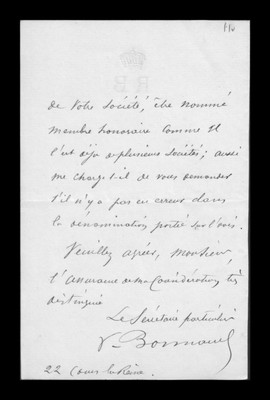 de votre Société, être nommé
membre honoraire comme il
l'est déjà de plusieurs Sociétés; aussi
me charge t-il de vous demander
s'il n'y a pas eu erreur dans
la dénomination porté sur l'avis.
Veuillez agréer, Monsieur,
l'assurance de ma Considération très
distinguée
Le Secrétaire particulier
22 Cours la Reine.